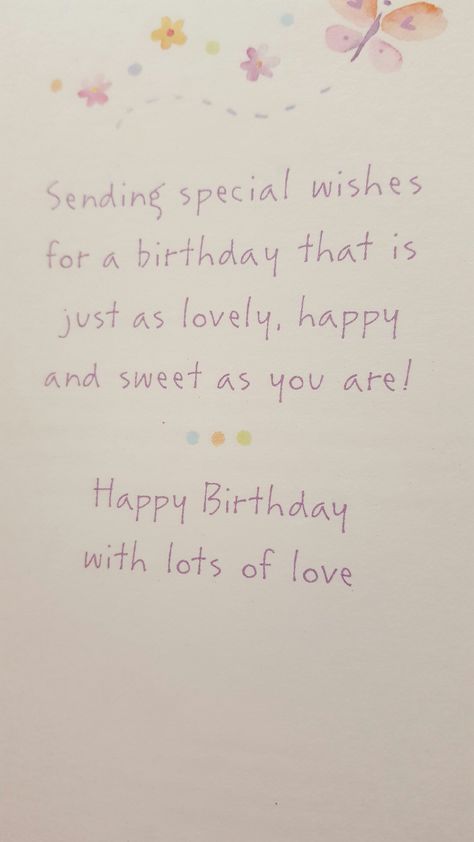 Sending special wishes
for a birthday that is
just as lovely, happy
and sweet as you are!
Happy Birthday
with lots of love